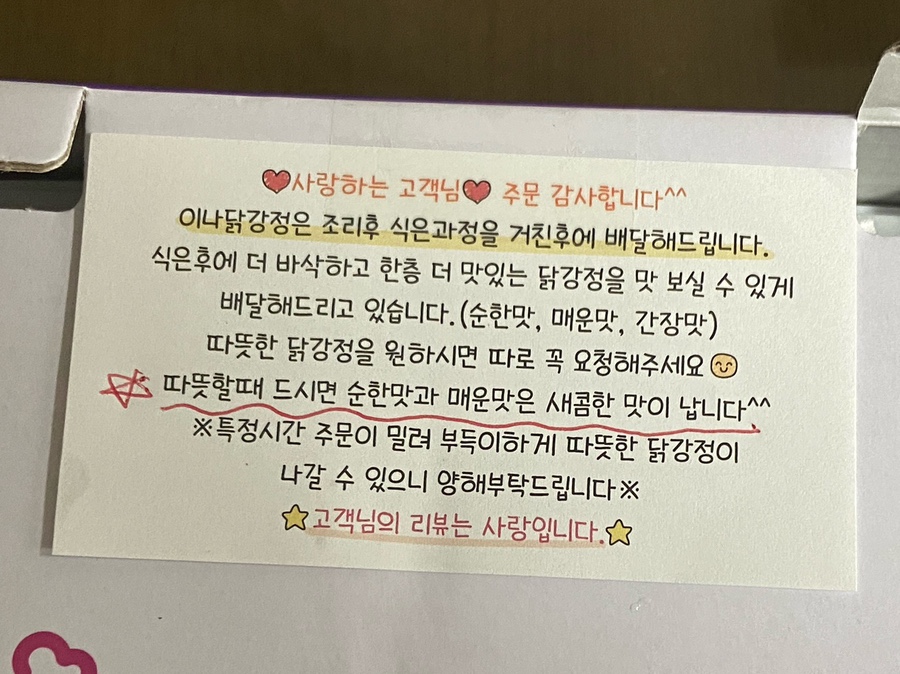 ❤사랑하는 고객님❤ 주문 감사합니다^^
이나닭강정은 조리후 식은과정을 거친후에 배달해드립니다.
식은후에 더 바삭하고 한층 더 맛있는 닭강정을 맛 보실 수 있게
배달해드리고 있습니다.(순한맛, 매운맛, 간장맛)
따뜻한 닭강정을 원하시면 따로 꼭 요청해주세요😊
따뜻할때 드시면 순한맛과 매운맛은 새콤한 맛이 납니다^^
※특정시간 주문이 밀려 부득이하게 따뜻한 닭강정이
나갈 수 있으니 양해부탁드립니다※
⭐고객님의 리뷰는 사랑입니다.⭐